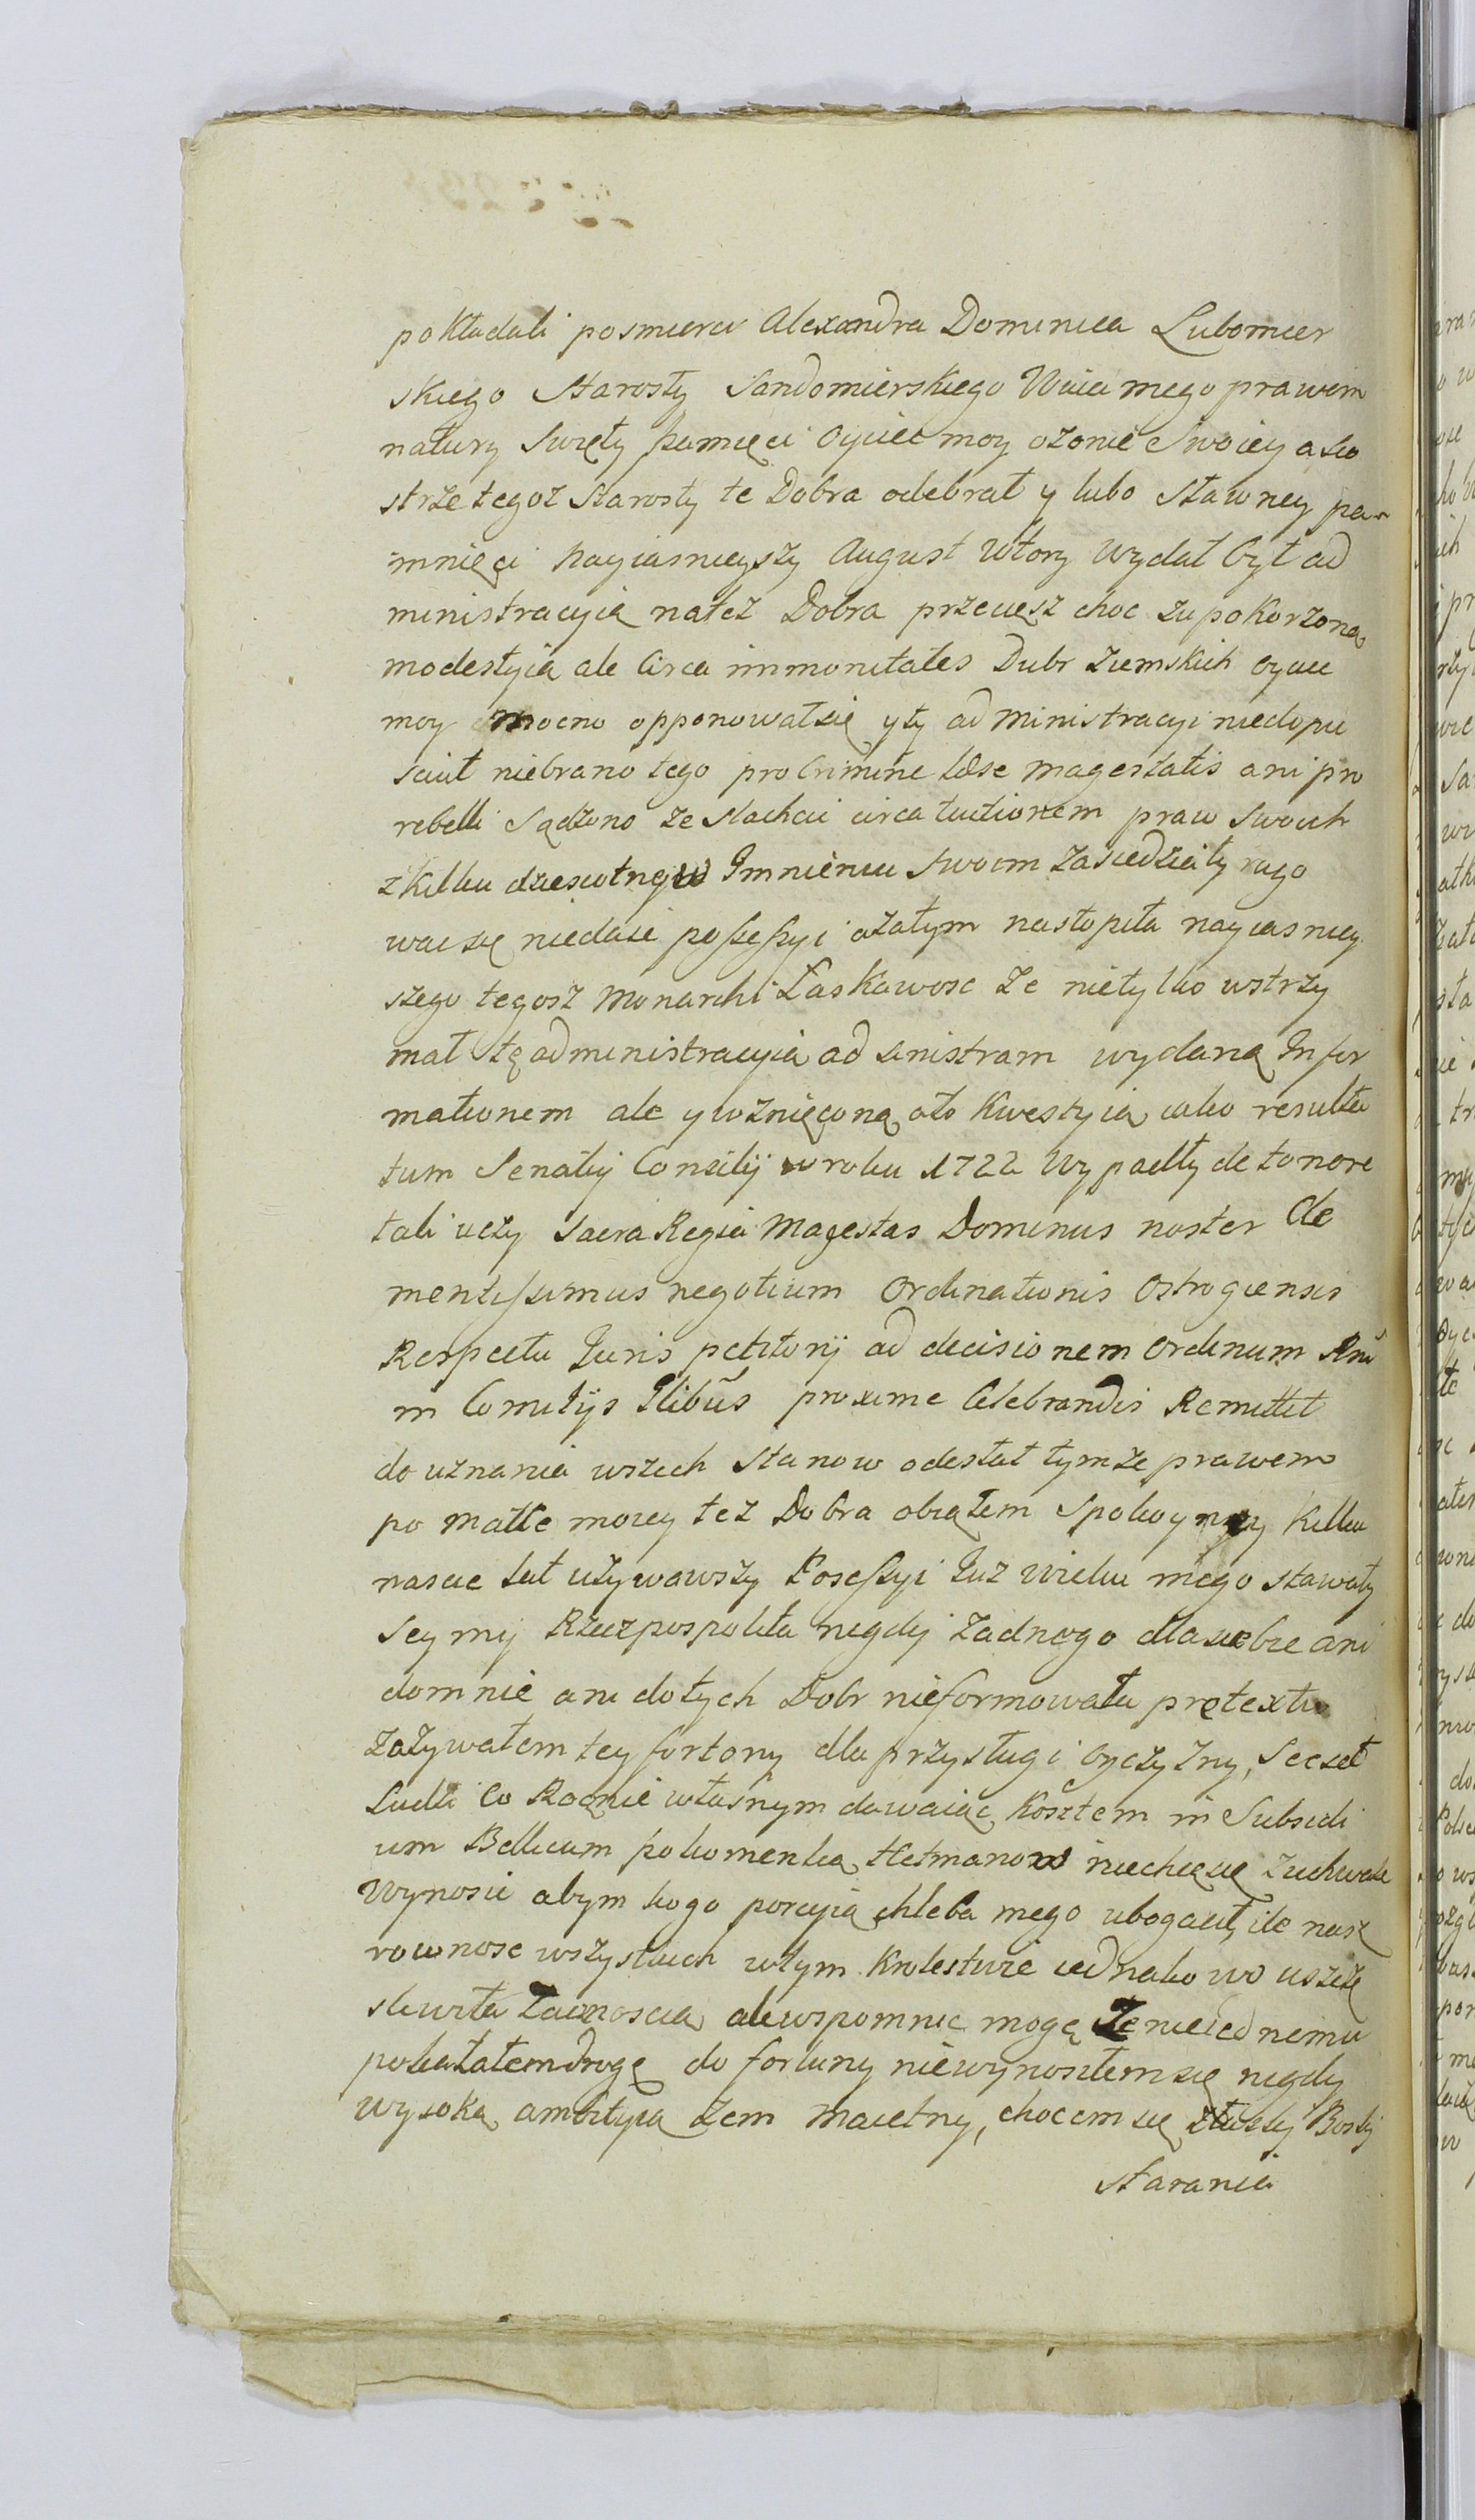 pokładali posmierci Alexandra Dominica Lubomier
skiego Starosty Sandomierskiego Wuia mego prawem
natury Swięty pamięci Oyciec moy ożonie Swoiey a sio
strze tegoż Starosty te Dobra odebrał y lubo Sławney pa
mnięci nayiasnieyszy August wtory wydał był ad
ministracyią nateż Dobra przecięsz choc zupokorzoną
modestyią ale Circa immonitates Dubr Ziemskich oyciec
moy mocno opponowałsię yty administracyi niedopu
scił niebrano tego pro Crimine læse magestatis ani pro
rebelli Sądzono ze Slachcic circa tuctionem praw Swoich
zkilku dziesiotnyw Imnieniu Swoim zasiedziały rugo
wac się niedaie possessyi azatym nastopiła nayiasniey
szego tegosz Monarchi Łaskawosc ze nietylko wstrzy
mał tę administracyią ad sinistram wydaną Infor
mationem ale ywznięconą oto kwestyią iako resulta
tum Senatus Consilij w roku 1722 wypadły de tonore
tali uczy Sacra Regia Magestas Dominus noster Cle
mentissimus negotium Ordinationis Ostrogiensis
Respectu Juris petitorij ad decisionem Ordinum Rni
in Comitijs Glibus proxime Celebrandis Remittit
do uznania wszech Stanow odesłał tymze prawem
po Matce moiey tez Dobra obiąłem Spokoyny kilku
nascie lat używawszy Possessyi Juz wieku mego stawały
Seymy Rzeczpospolita nigdy żadnego dla siebie ani
domnie ani dotych Dobr nieformowała pretextu
Zażywałem tey fortony dla przysługi oyczyzny, Seeset
Ludzi Co Rocznie własnym dawaiąc kosztem in Subsidi
um Bellicum pokomendą Hetmanow niechcęsię zuchwale
Wynosic abym kogo porcyią chleba mego ubogacił, ile nasz
rownosc wszystkich wtym Krolestwie iednako wo uszczę
sliwiła Zacnoscią alewspomnic mogę Ze nieiednemu
pokazałemdrogę do fortuny niewynosiłemsię nigdy
wysoką ambityią żem maietny, chocem się złaski Boski
starania